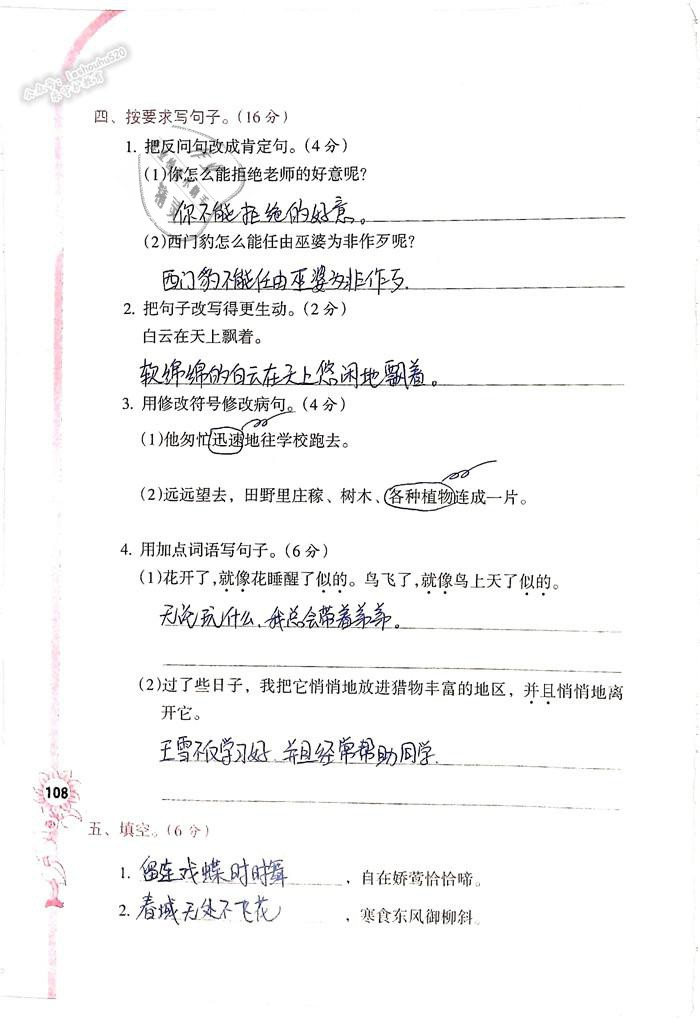 公众号: leshouhu520
乐守护教育
四、按要求写句子。(16分)
1. 把反问句改成肯定句。(4分)
(1)你怎么能拒绝老师的好意呢?
你不能拒绝的好意。
(2)西门豹怎么能任由巫婆为非作歹呢?
西门豹不能任由巫婆为非作歹.
2. 把句子改写得更生动。(2分)
白云在天上飘着。
软绵绵的白云在天上悠闲地飘着。
3. 用修改符号修改病句。(4分)
(1)他匆忙迅速地往学校跑去。
(2)远远望去，田野里庄稼、树木、各种植物连成一片。
4. 用加点词语写句子。(6分)
(1)花开了，就像花睡醒了似的。鸟飞了，就像鸟上天了似的。
无论玩什么，我总会带着弟弟。
(2)过了些日子，我把它悄悄地放进猎物丰富的地区，并且悄悄地离
开它。
王雪不仅学习好，并且经常帮助同学.
108
五、填空。(6分)
1. 留连戏蝶时时舞，自在娇莺恰恰啼。
2. 春城无处不飞花，寒食东风御柳斜。